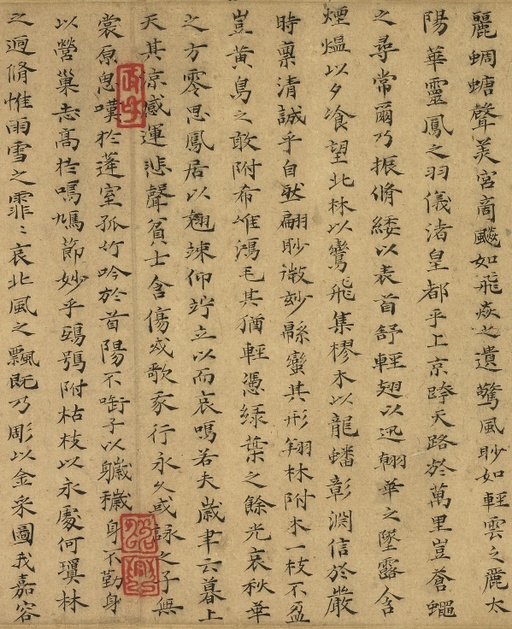 麗蜩螗聲美宮商飈如飛焱之遺驚風眇如輕雲之麗太
陽華靈鳳之羽儀渚皇都乎上京跨天路於萬里豈蒼蠅
之尋常爾乃振脩緌以表首舒輕翅以迅翰華之墜露含
煙熅以夕飡望北林以鸞飛集樛木以龍蟠彰淵信於嚴
時稟清誠乎自然翩眇微妙緜蠻其形翔林附木一枝不盈
豈黃鳥之敢附希唯鴻毛其猶輕憑綠葉之餘光哀秋華
之方零思鳳居以翹竦仰竚立以而哀鳴若夫歲聿云暮上
天其涼感運悲聲貧士含傷或歌我行永久或詠之子無
裳原思嘆於蓬室孤竹吟於首陽不銜子以穢身不勤身
以營巢志高於鳲鳩節妙乎鴟鴞附枯枝以永處何瓊林
之迥脩惟雨雪之霏〻哀北風之飄既乃彫以金采圖我嘉容